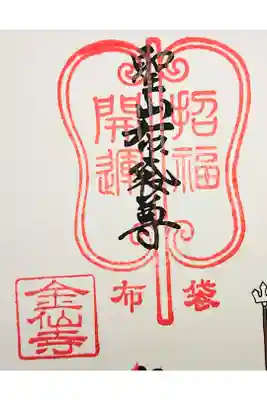 招福
開運
布袋尊
布袋
金仙寺